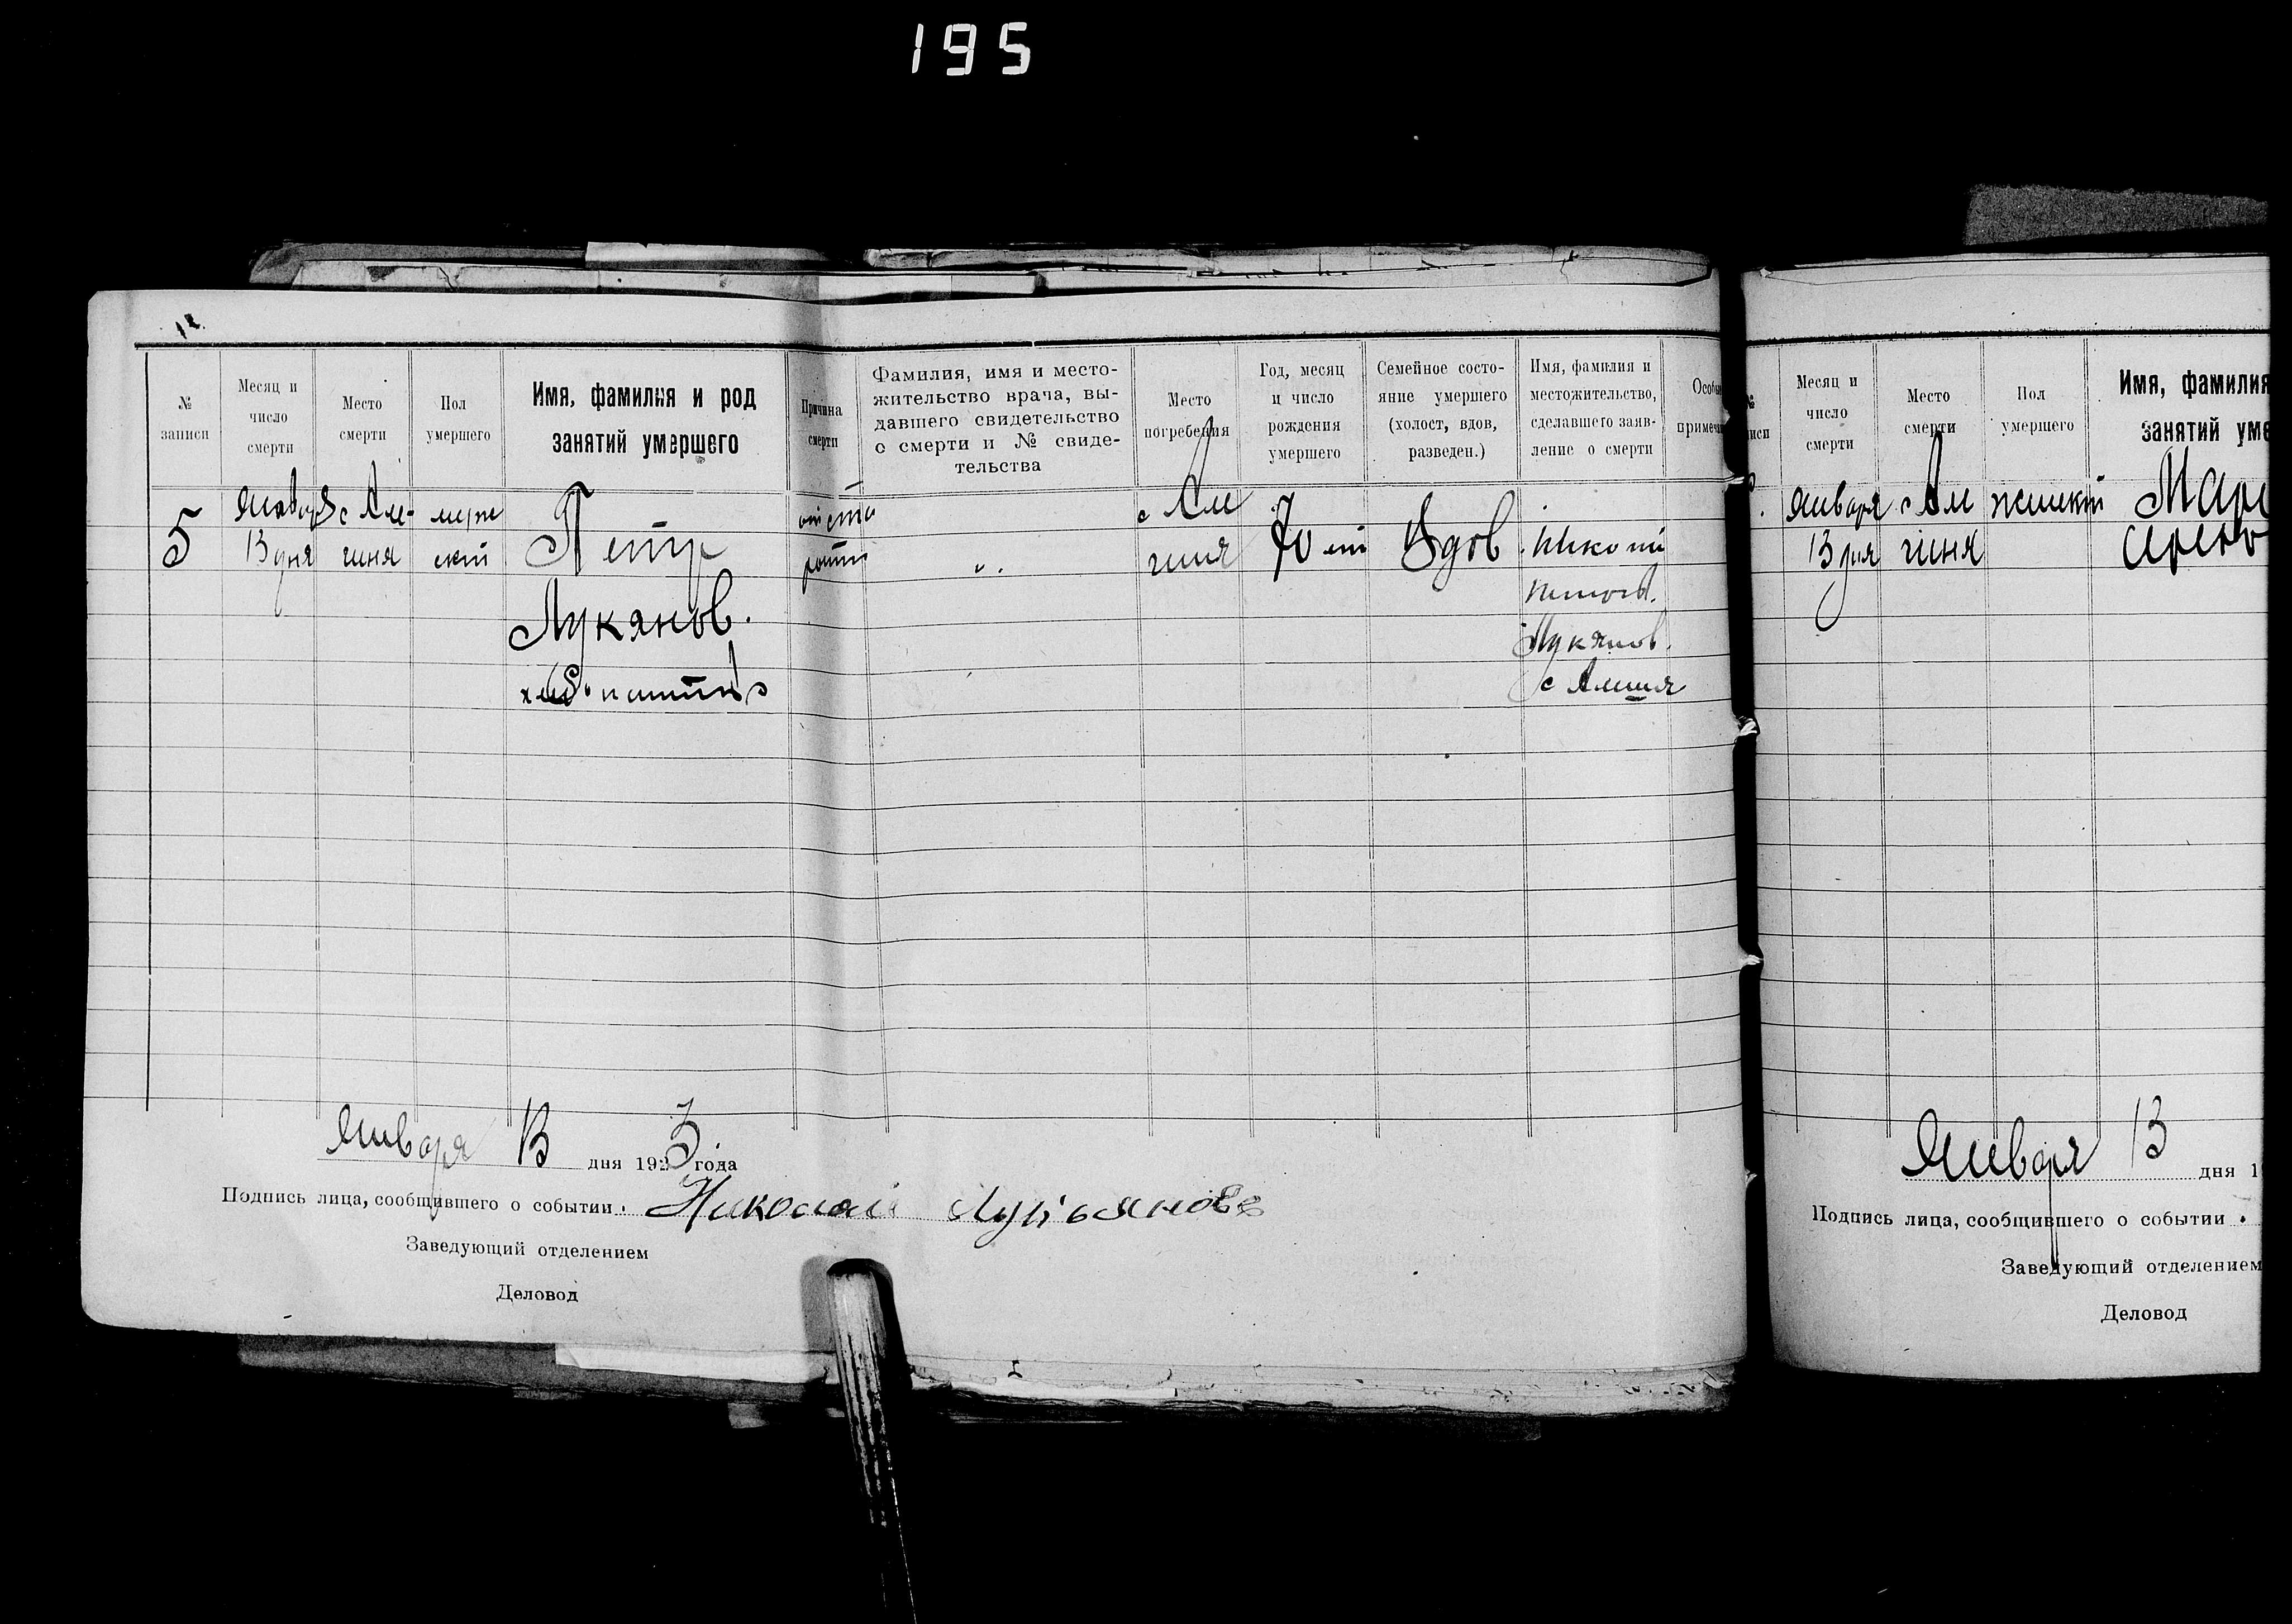 195
12.
№
записи
Месяц и
число
смерти
Место
смерти
Пол
умершего
Имя, фамилия и род
занятий умершего
Причина
смерти
Фамилия, имя и место-
жительство врача, вы-
давшего свидетельство
о смерти и № свиде-
тельства
Место
погребения
Год, месяц
и число
рождения
умершего
Семейное состо-
яние умершего
(холост, вдов,
разведен.)
Имя, фамилия и
местожительство,
сделавшего заяв-
ление о смерти
Особы
примеча
5
Января
13 дня
с Ам-
гиня
муж
ской
Петр
Лукянов.
от ста
рости
„.
с Ам
гиня
70 лет
Вдов
Николай
Лукянов.
с Амгиня
Января 13 дня 1923 года
Подпись лица, сообщившего о событии. Николай Лукьянов
Заведующий отделением
Деловод
Месяц и
число
смерти
Место
смерти
Пол
умершего
Имя, фамилия
занятий уме
Января
13 дня
с Ам
гиня
женский
Мар
Января 13 дня 1
Подпись лица, сообщившего о событии .
Заведующий отделением
Деловод